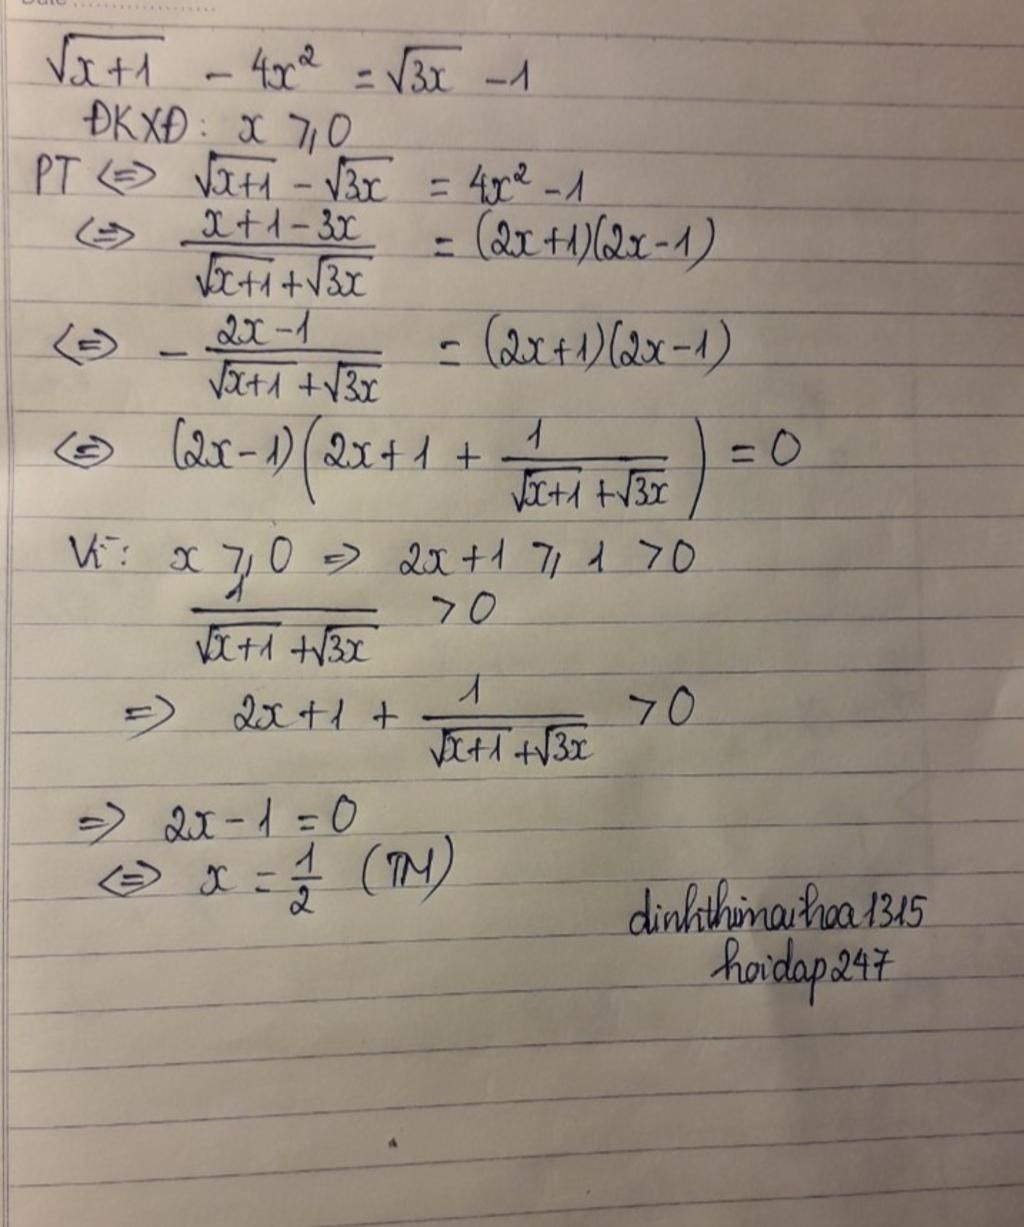 Date ................
√(x+1) - 4x² = √(3x) - 1
ĐKXĐ: x ≥ 0
PT <=> √(x+1) - √(3x) = 4x² - 1
<=> (x+1-3x)/(√(x+1) + √(3x)) = (2x+1)(2x-1)
<=> - (2x-1)/(√(x+1) + √(3x)) = (2x+1)(2x-1)
<=> (2x-1)(2x+1 + 1/(√(x+1) + √(3x))) = 0
Vì: x ≥ 0 => 2x+1 ≥ 1 > 0
1/(√(x+1) + √(3x)) > 0
=> 2x+1 + 1/(√(x+1) + √(3x)) > 0
=> 2x-1 = 0
<=> x = 1/2 (TM)
dinhthimaihoa1315
hoidap247